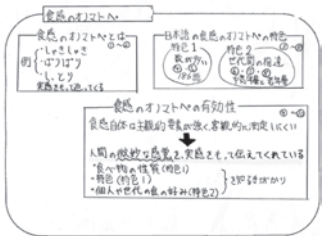 食感のオノマトペ
食感のオノマトペとは
①~②
例
・しゃきしゃき
・ぱりぱり
・しっとり
実感をもって伝えてくる
日本語の食感のオノマトペの特色
特色1
数が多い
特色2
世代間の相違
食感のオノマトペの有効性
食感自体は主観的要素が強く、客観的に測定しにくい
人間の微妙な感覚を、実感をもって伝えてくれている
・食べ物の性質(特色1)
・特色(特色1)
・個人や世代の食の好み(特色2)
を知る手がかり